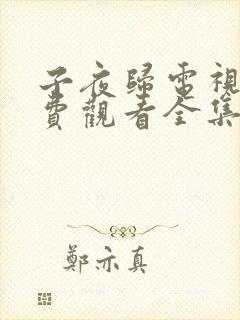 子夜歸電視
費觀看全集
鄭亦真